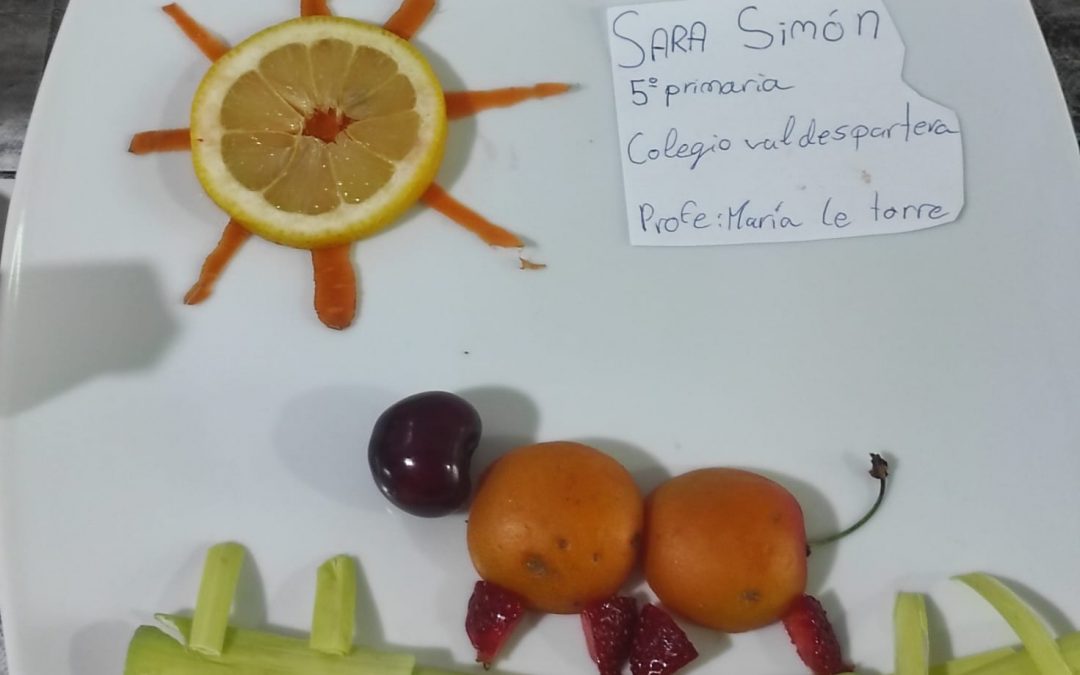 SARA Simón
5º primaria
Colegio valdespartera
Profe: María le torre